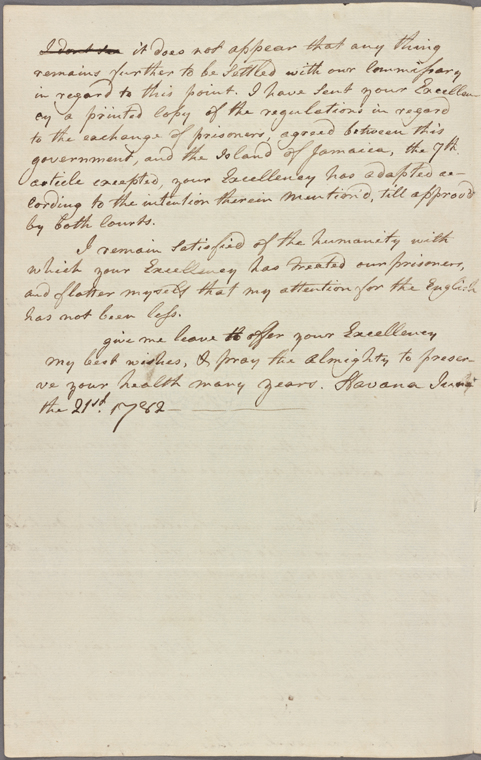 it does not appear that any thing
remains further to be settled with our Commissary
in regard to this point. I have sent your Excellen-
cy a printed Copy of the regulations in regard
to the exchange of prisoners, agreed between this
government, and the Island of Jamaica, the 7th
article excepted, your Excellency has adapted ac-
cording to the intention therein mention'd, till approv'd
by both Courts.
I remain satisfied of the humanity with
which your Excellency has treated our prisoners,
and flatter myself that my attention for the English
has not been less.
give me leave to offer your Excellency
my best wishes, & pray the Almighty to preser-
ve your health many years. Havana June
the 21st. 1782